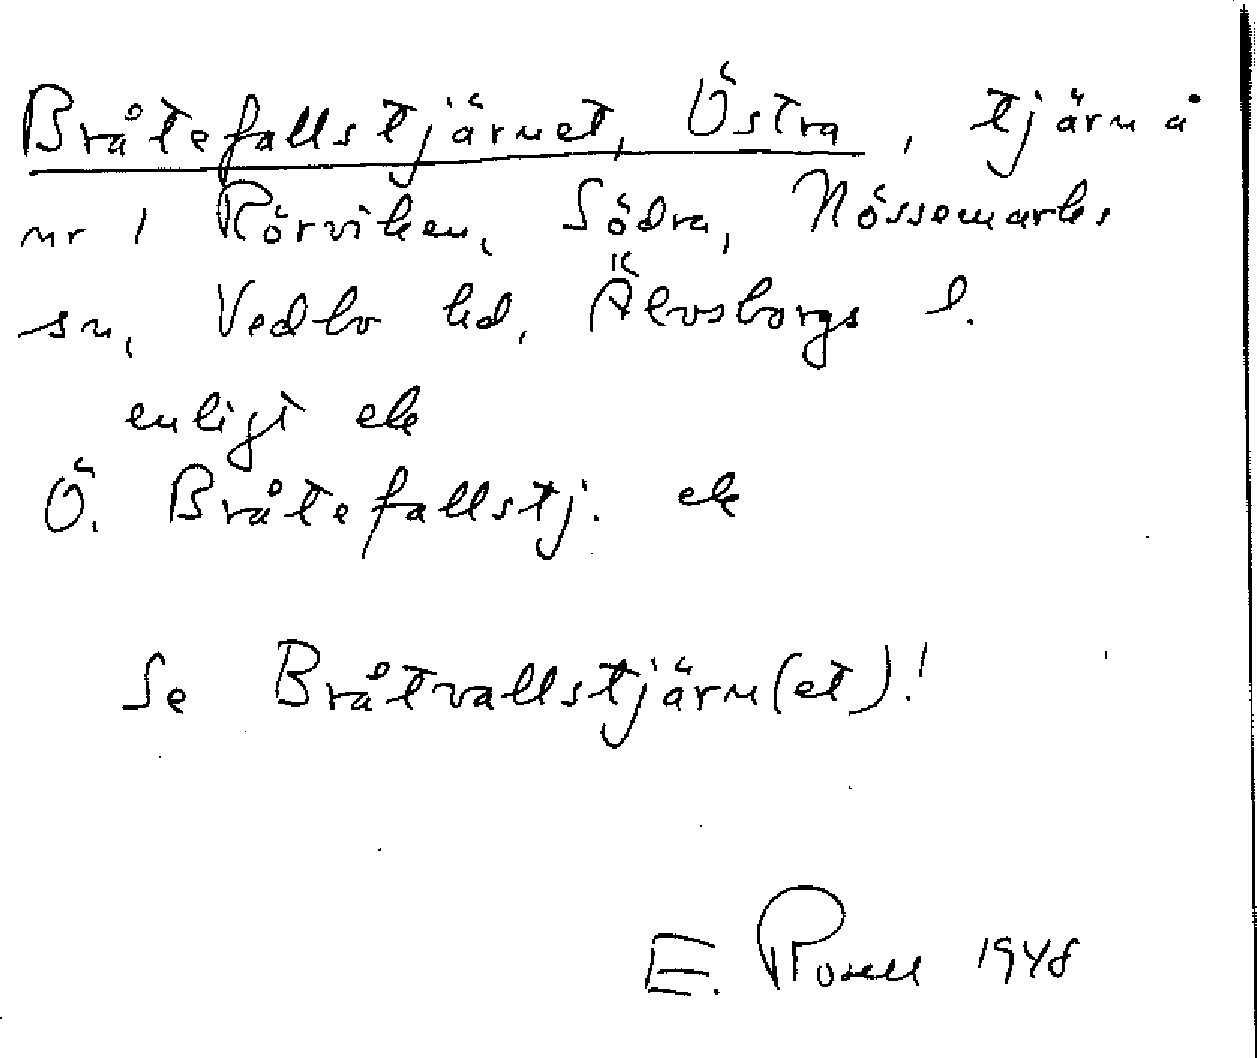 Bråtefallstjärnet, Östra, tjärn å
nr 1 Rörviken, Södra, Nössemarks
sn, Vedbo hd, Älvsborgs l.
enligt ek
Ö. Bråtefallstj. ek
Se Bråtvallstjärn(et)!
E. Rosell 1948